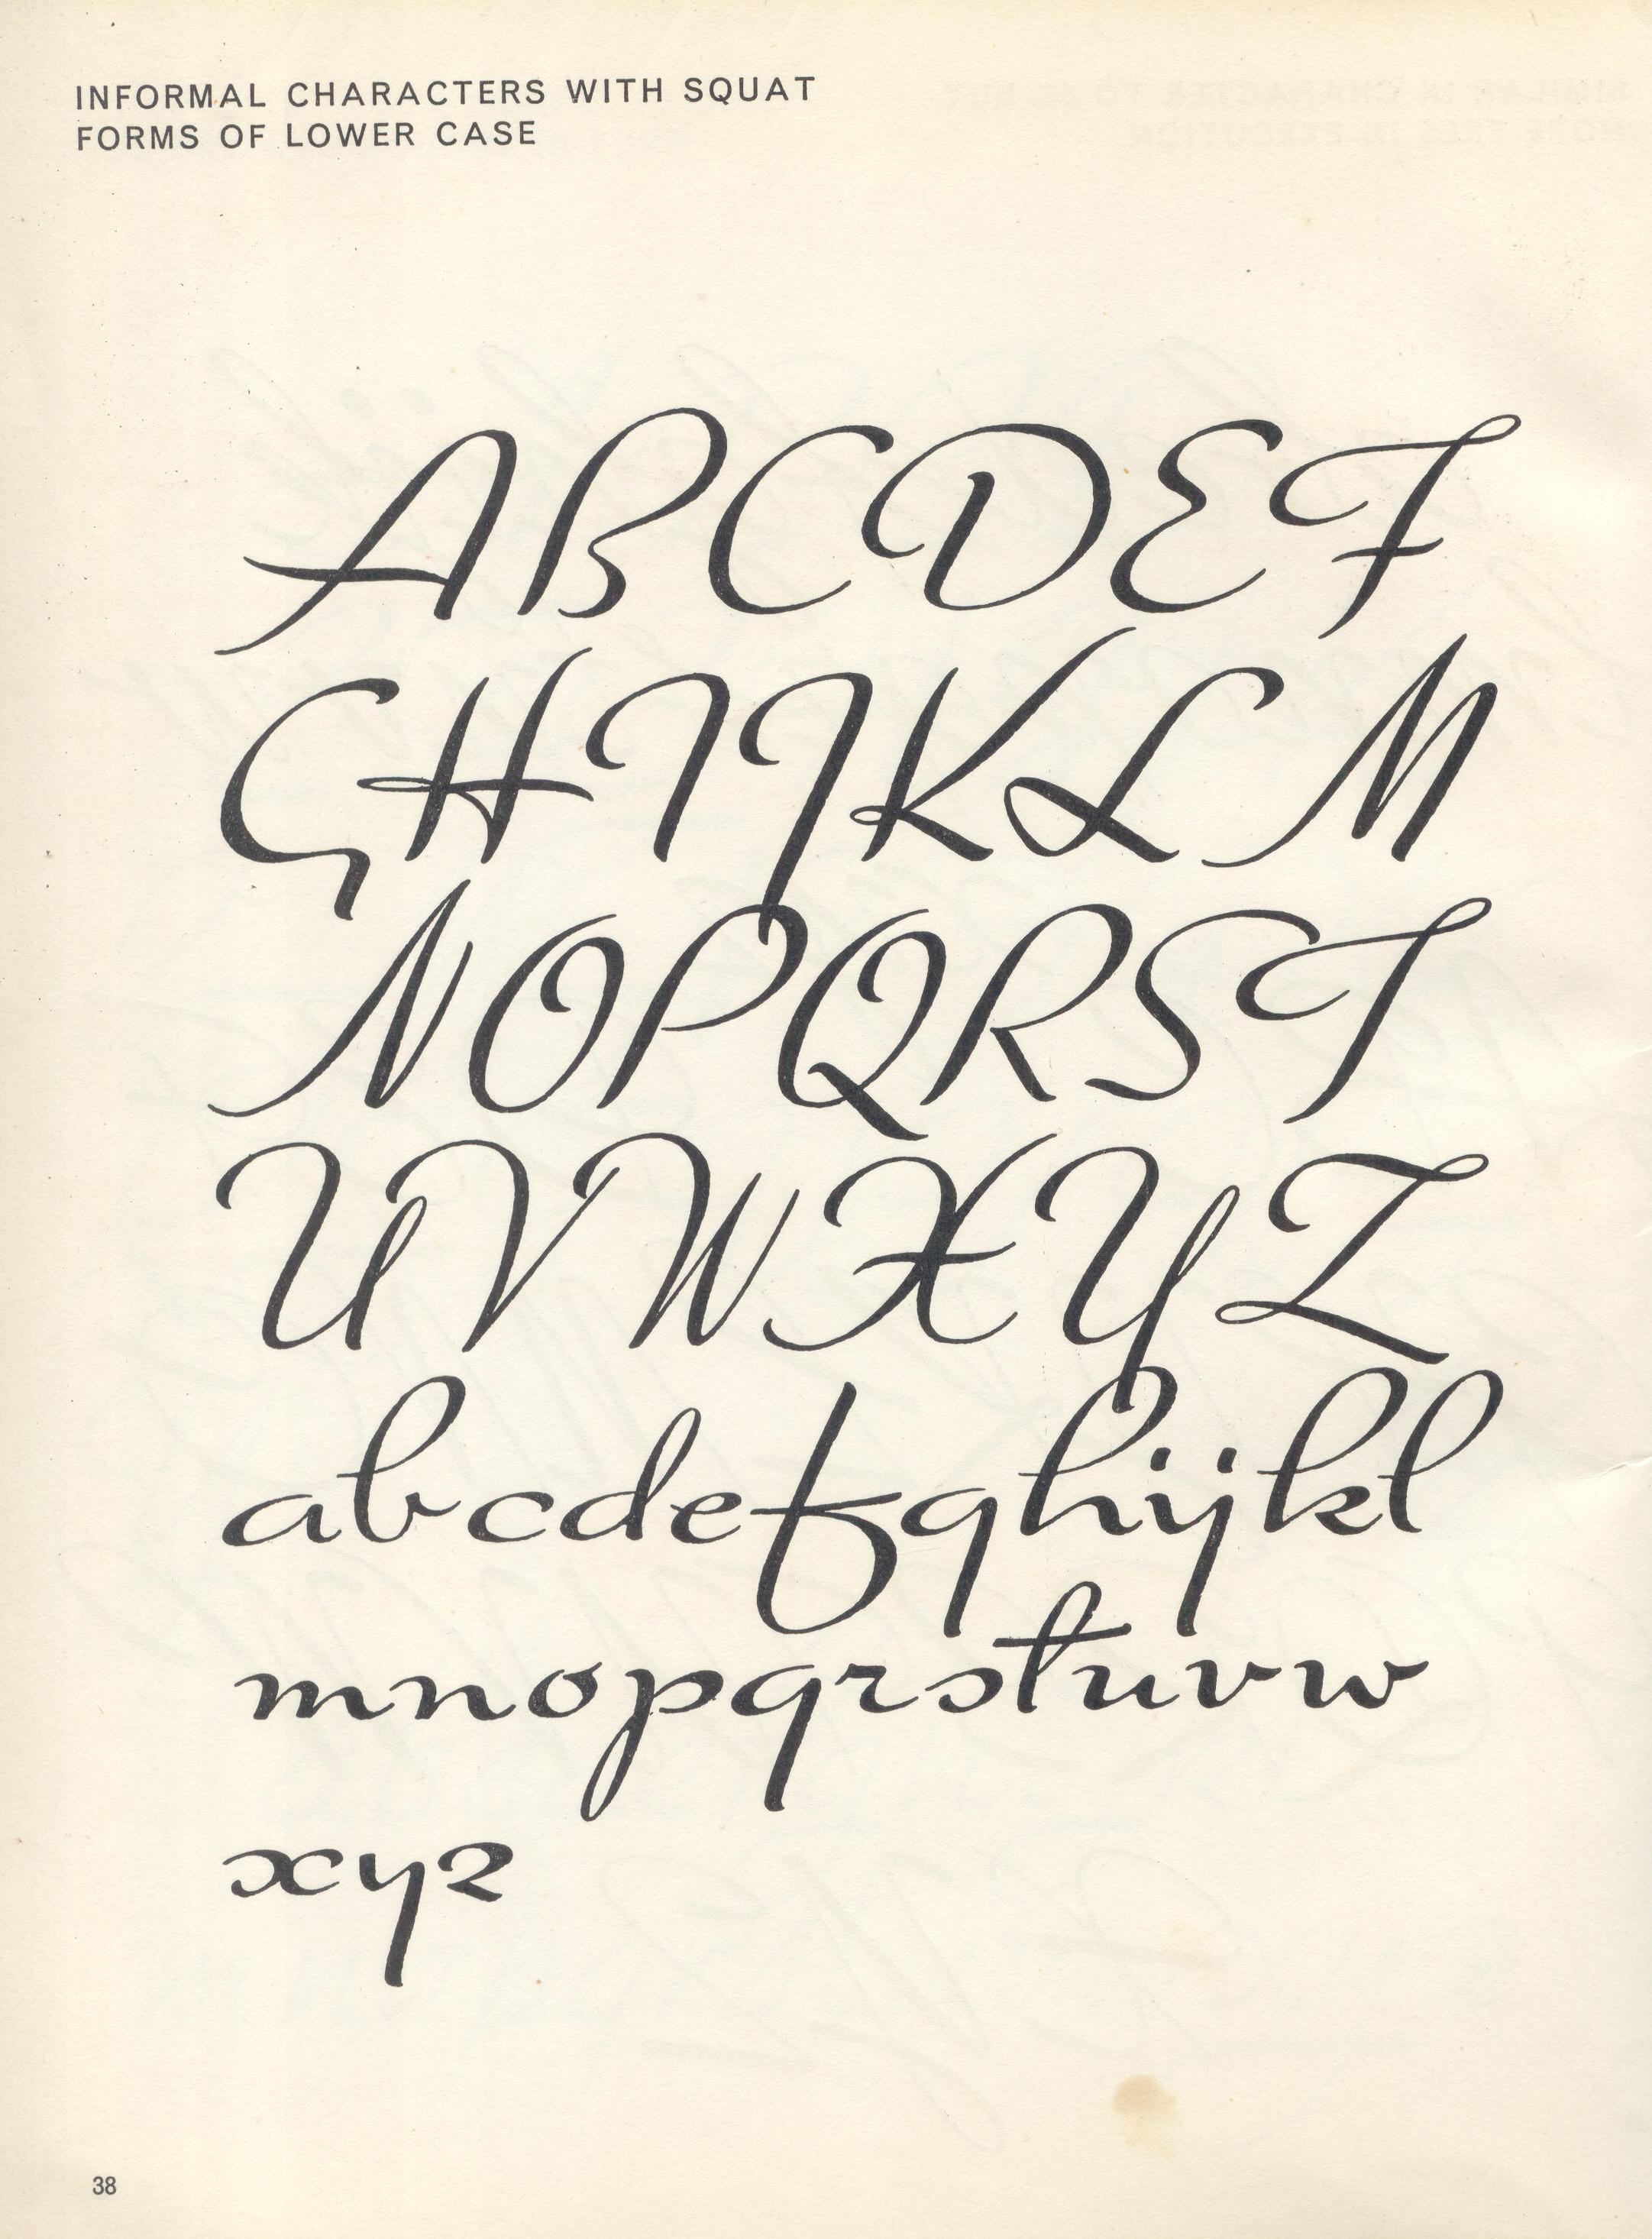 INFORMAL CHARACTERS WITH SQUAT
FORMS OF LOWER CASE
ABCDEF
GHIJKLM
NOPQRST
UVWXYZ
abcdefghijkl
mnopqrstuvw
xyz
38